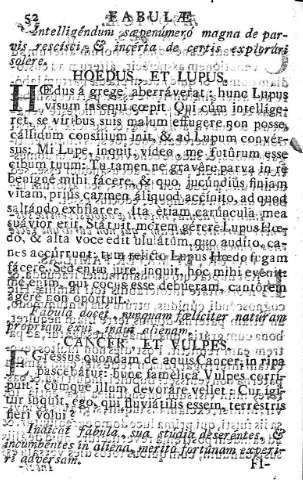 52 FABULÆ
Intelligendum sæpenumero magna de par-
vis resciscì, & incerta de certis explorari
solere.
HOEDUS, ET LUPUS.
HŒdus a grege aberraverat: hunc Lupus
visum insequi cœpit. Qui cum intellige-
ret, se viribus suis malum effugere non posse,
callidum consilium init, & ad Lupum conver-
sus: Mi Lupe, inquit, video, me futurum esse
cibum tuum. Tu tamen ne gravere parva in re
benigne mihi facere, & quo jucundius finiam
vitam, prius carmen aliquod accinito, ad quod
saltando exhilarer. Ita etiam caruncula mea
suavior erit. Statuit morem gerere Lupus Hœ-
do, & alta voce edit ululatum, quo audito, ca-
nes accurrunt, tum relicto Lupus Hœdo fugam
facere. Sed enim jure, inquit, hoc mihi evenit:
me enim, qui cocus esse debueram, cantorem
agere non oportuit.
Fabula docet, nunquam fœliciter naturam
propriam exui, indui alienam.
CANCER, ET VULPES.
EGressus quondam de aquis Cancer, in ripa
pascebatur: hunc famelica Vulpes corri-
puit, cumque illum devorare vellet: Cur
inquit, ego, qui fluviatilis essem, terrestris
fieri volui?
Indicat fabula, sua studia deserentes, &
incumbentes in aliena, merito fortunam experi-
ri adversam.
FI-